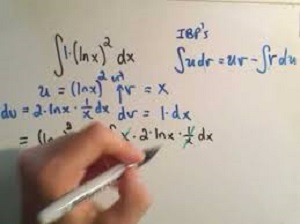 IBP's
∫1·(ln x)² dx
∫u dv = uv - ∫v du
u = (ln x)² v = x
du = 2·ln x · 1/x dx dv = 1·dx
= (ln x)² ∫ x · 2·ln x · 1/x dx